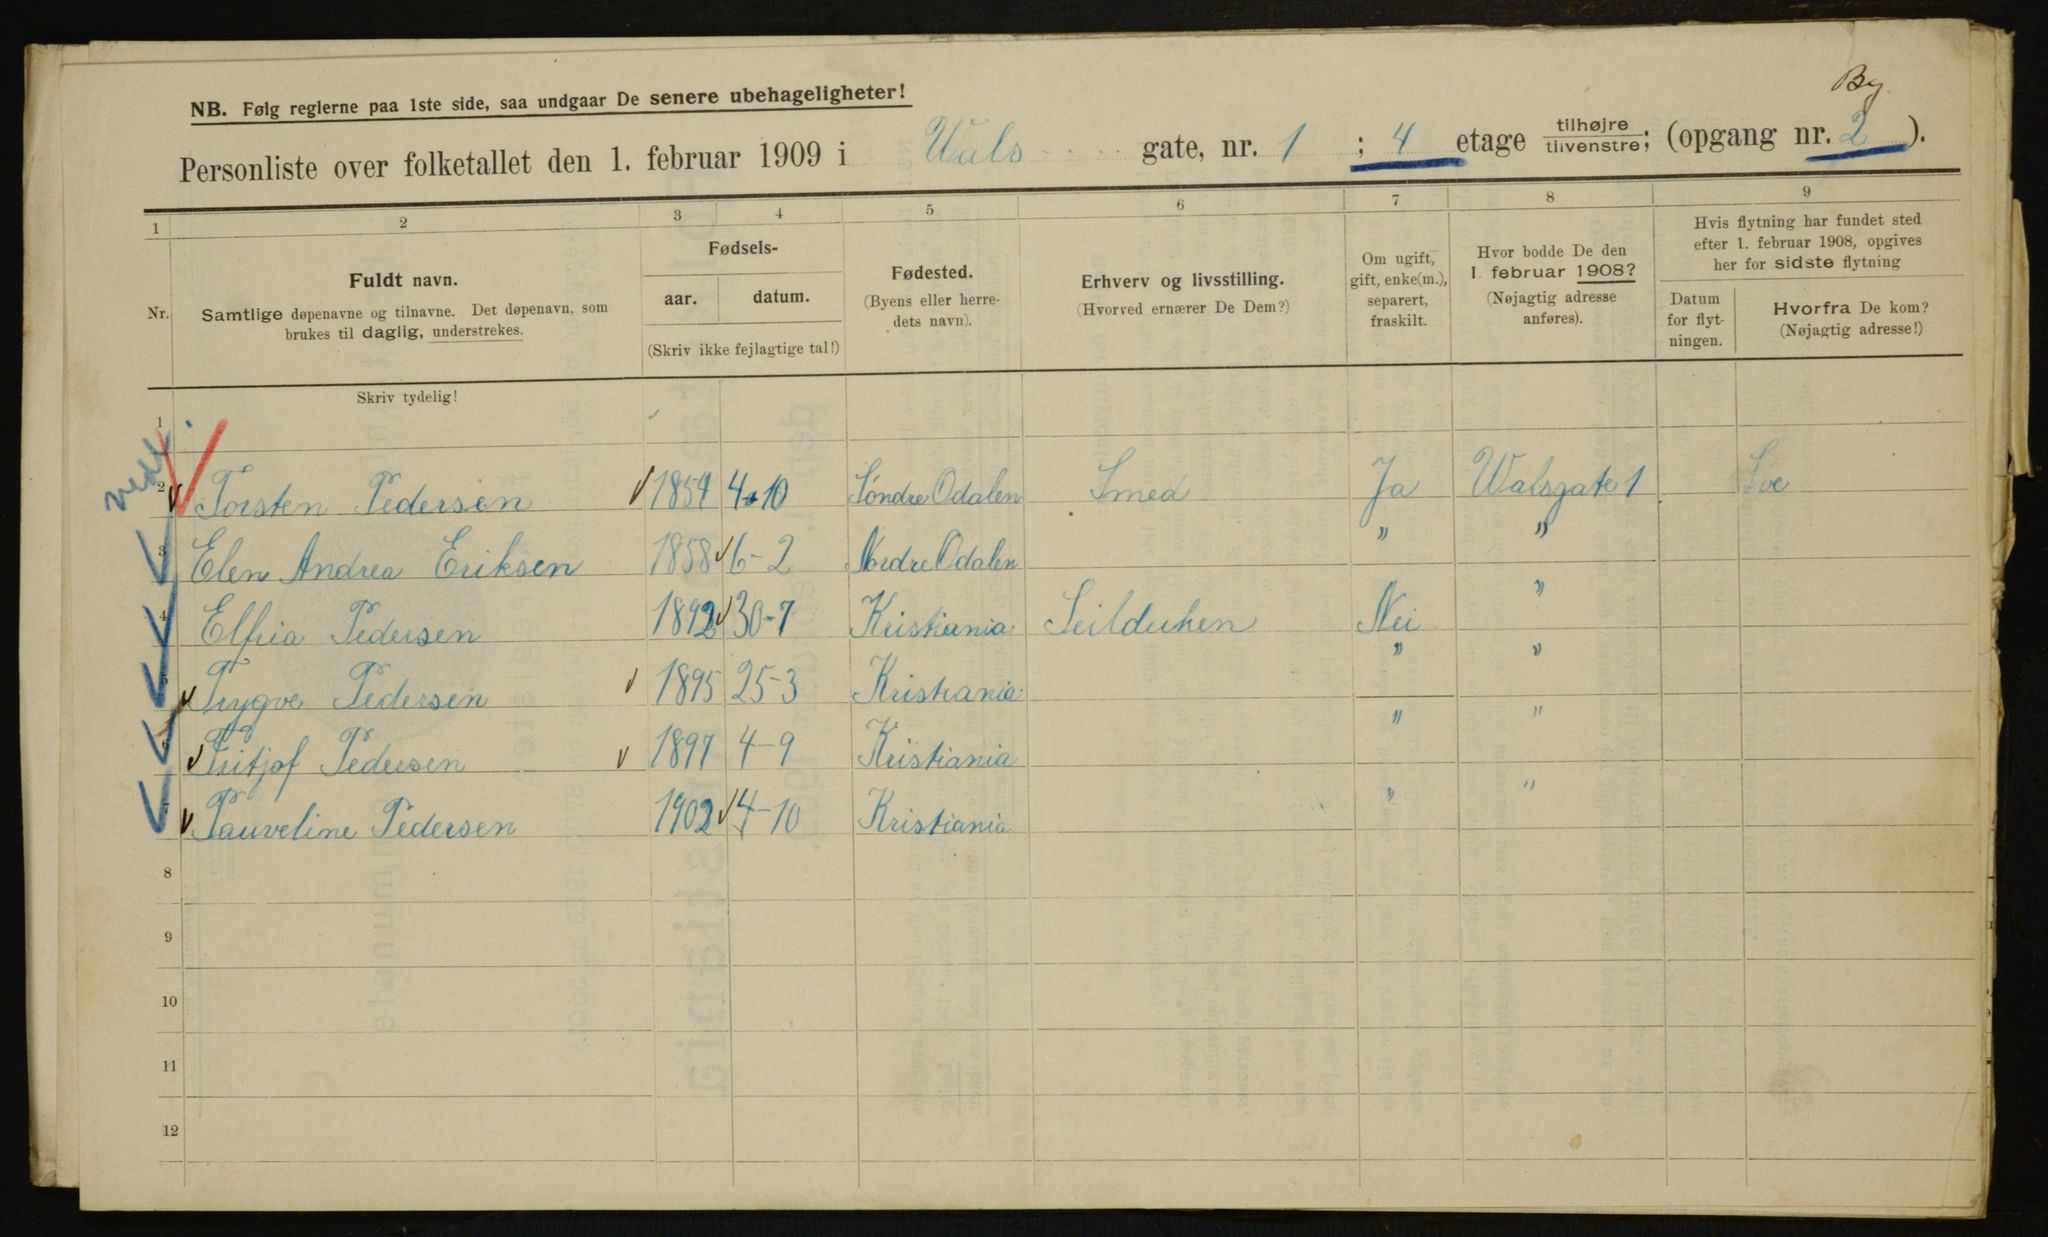 By.
NB. Følg reglerne paa 1ste side, saa undgaar De senere ubehageligheter!
Personliste over folketallet den 1. februar 1909 i Wals gate, nr. 1; 4 etage tilhøjre tilvenstre; (opgang nr. 2).
1 2 3 4 5 6 7 8 9
Nr.
Fuldt navn.
Samtlige døpenavne og tilnavne. Det døpenavn, som
brukes til daglig, understrekes.
Fødsels-
aar. datum.
(Skriv ikke fejlagtige tal!)
Fødested.
(Byens eller herre-
dets navn).
Erhverv og livsstilling.
(Hvorved ernærer De Dem?)
Om ugift,
gift, enke(m.),
separert,
fraskilt.
Hvor bodde De den
1. februar 1908?
(Nøjagtig adresse
anføres).
Hvis flytning har fundet sted
efter 1. februar 1908, opgives
her for sidste flytning
Datum
for flyt-
ningen.
Hvorfra De kom?
(Nøjagtig adresse!)
Skriv tydelig!
1
2 Torsten Pedersen 1859 4-10 Søndre Odalen Smed Ja Walsgate 1
3 Elen Andrea Eriksen 1858 6-2 Nordre Odalen " "
4 Elfria Pedersen 1892 30-7 Kristiania Seilduken Nei "
5 Trygve Pedersen 1895 25-3 Kristiania " "
6 Fritjof Pedersen 1897 4-9 Kristiania " "
7 Pauveline Pedersen 1902 4-10 Kristiania " "
8
9
10
11
12